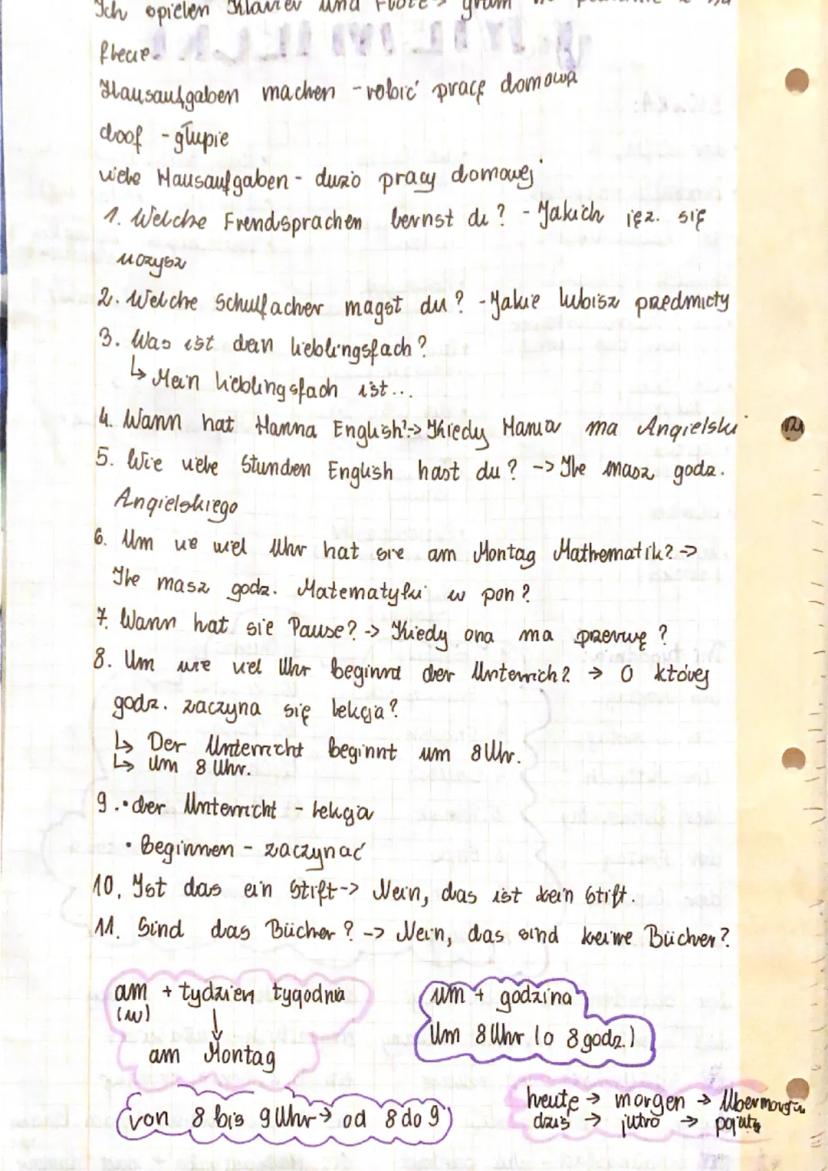 Ich spielen Klavier und Flöte → gram na pianinie i na
flecie.
Hausaufgaben machen - robić pracę domową
doof - głupie
viele Hausaufgaben - dużo pracy domowej
1. Welche Frendsprachen lernst du? - Jakich jęz. się
uczysz
2. Welche Schulfacher magst du? - Jakie lubisz przedmioty
3. Was ist dein Lieblingsfach?
↳ Mein Lieblingsfach ist...
4. Wann hat Hanna English? -> Kiedy Hania ma Angielski
5. Wie viele Stunden English hast du? -> Ile masz godz.
Angielskiego
6. Um wie viel Uhr hat sie am Montag Mathematik? ->
Ile masz godz. Matematyki w pon?
7. Wann hat sie Pause? -> Kiedy ona ma przerwę?
8. Um wie viel Uhr beginnt der Unterrich? → O której
godz. zaczyna się lekcja?
↳ Der Unterricht beginnt um 8 Uhr.
↳ Um 8 Uhr.
9. • der Unterricht - lekcja
• Beginnen - zaczynać
10. Ist das ein Stift -> Nein, das ist kein Stift.
11. Sind das Bücher? -> Nein, das sind keine Bücher?
am + tydzien tygodnia
(w) ↓
am Montag
um + godzina
Um 8 Uhr (o 8 godz.)
von 8 bis 9 Uhr → od 8 do 9
heute → morgen → Übermorgen
dziś → jutro → pojutrze